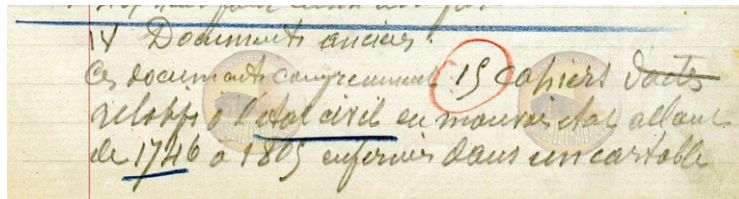 18 Documents anciens.
Ces documents comprennent 15 cahiers d'actes
relatifs à l'état civil en mauvais état allant
de 1746 à 1805 enfermés dans un cartable